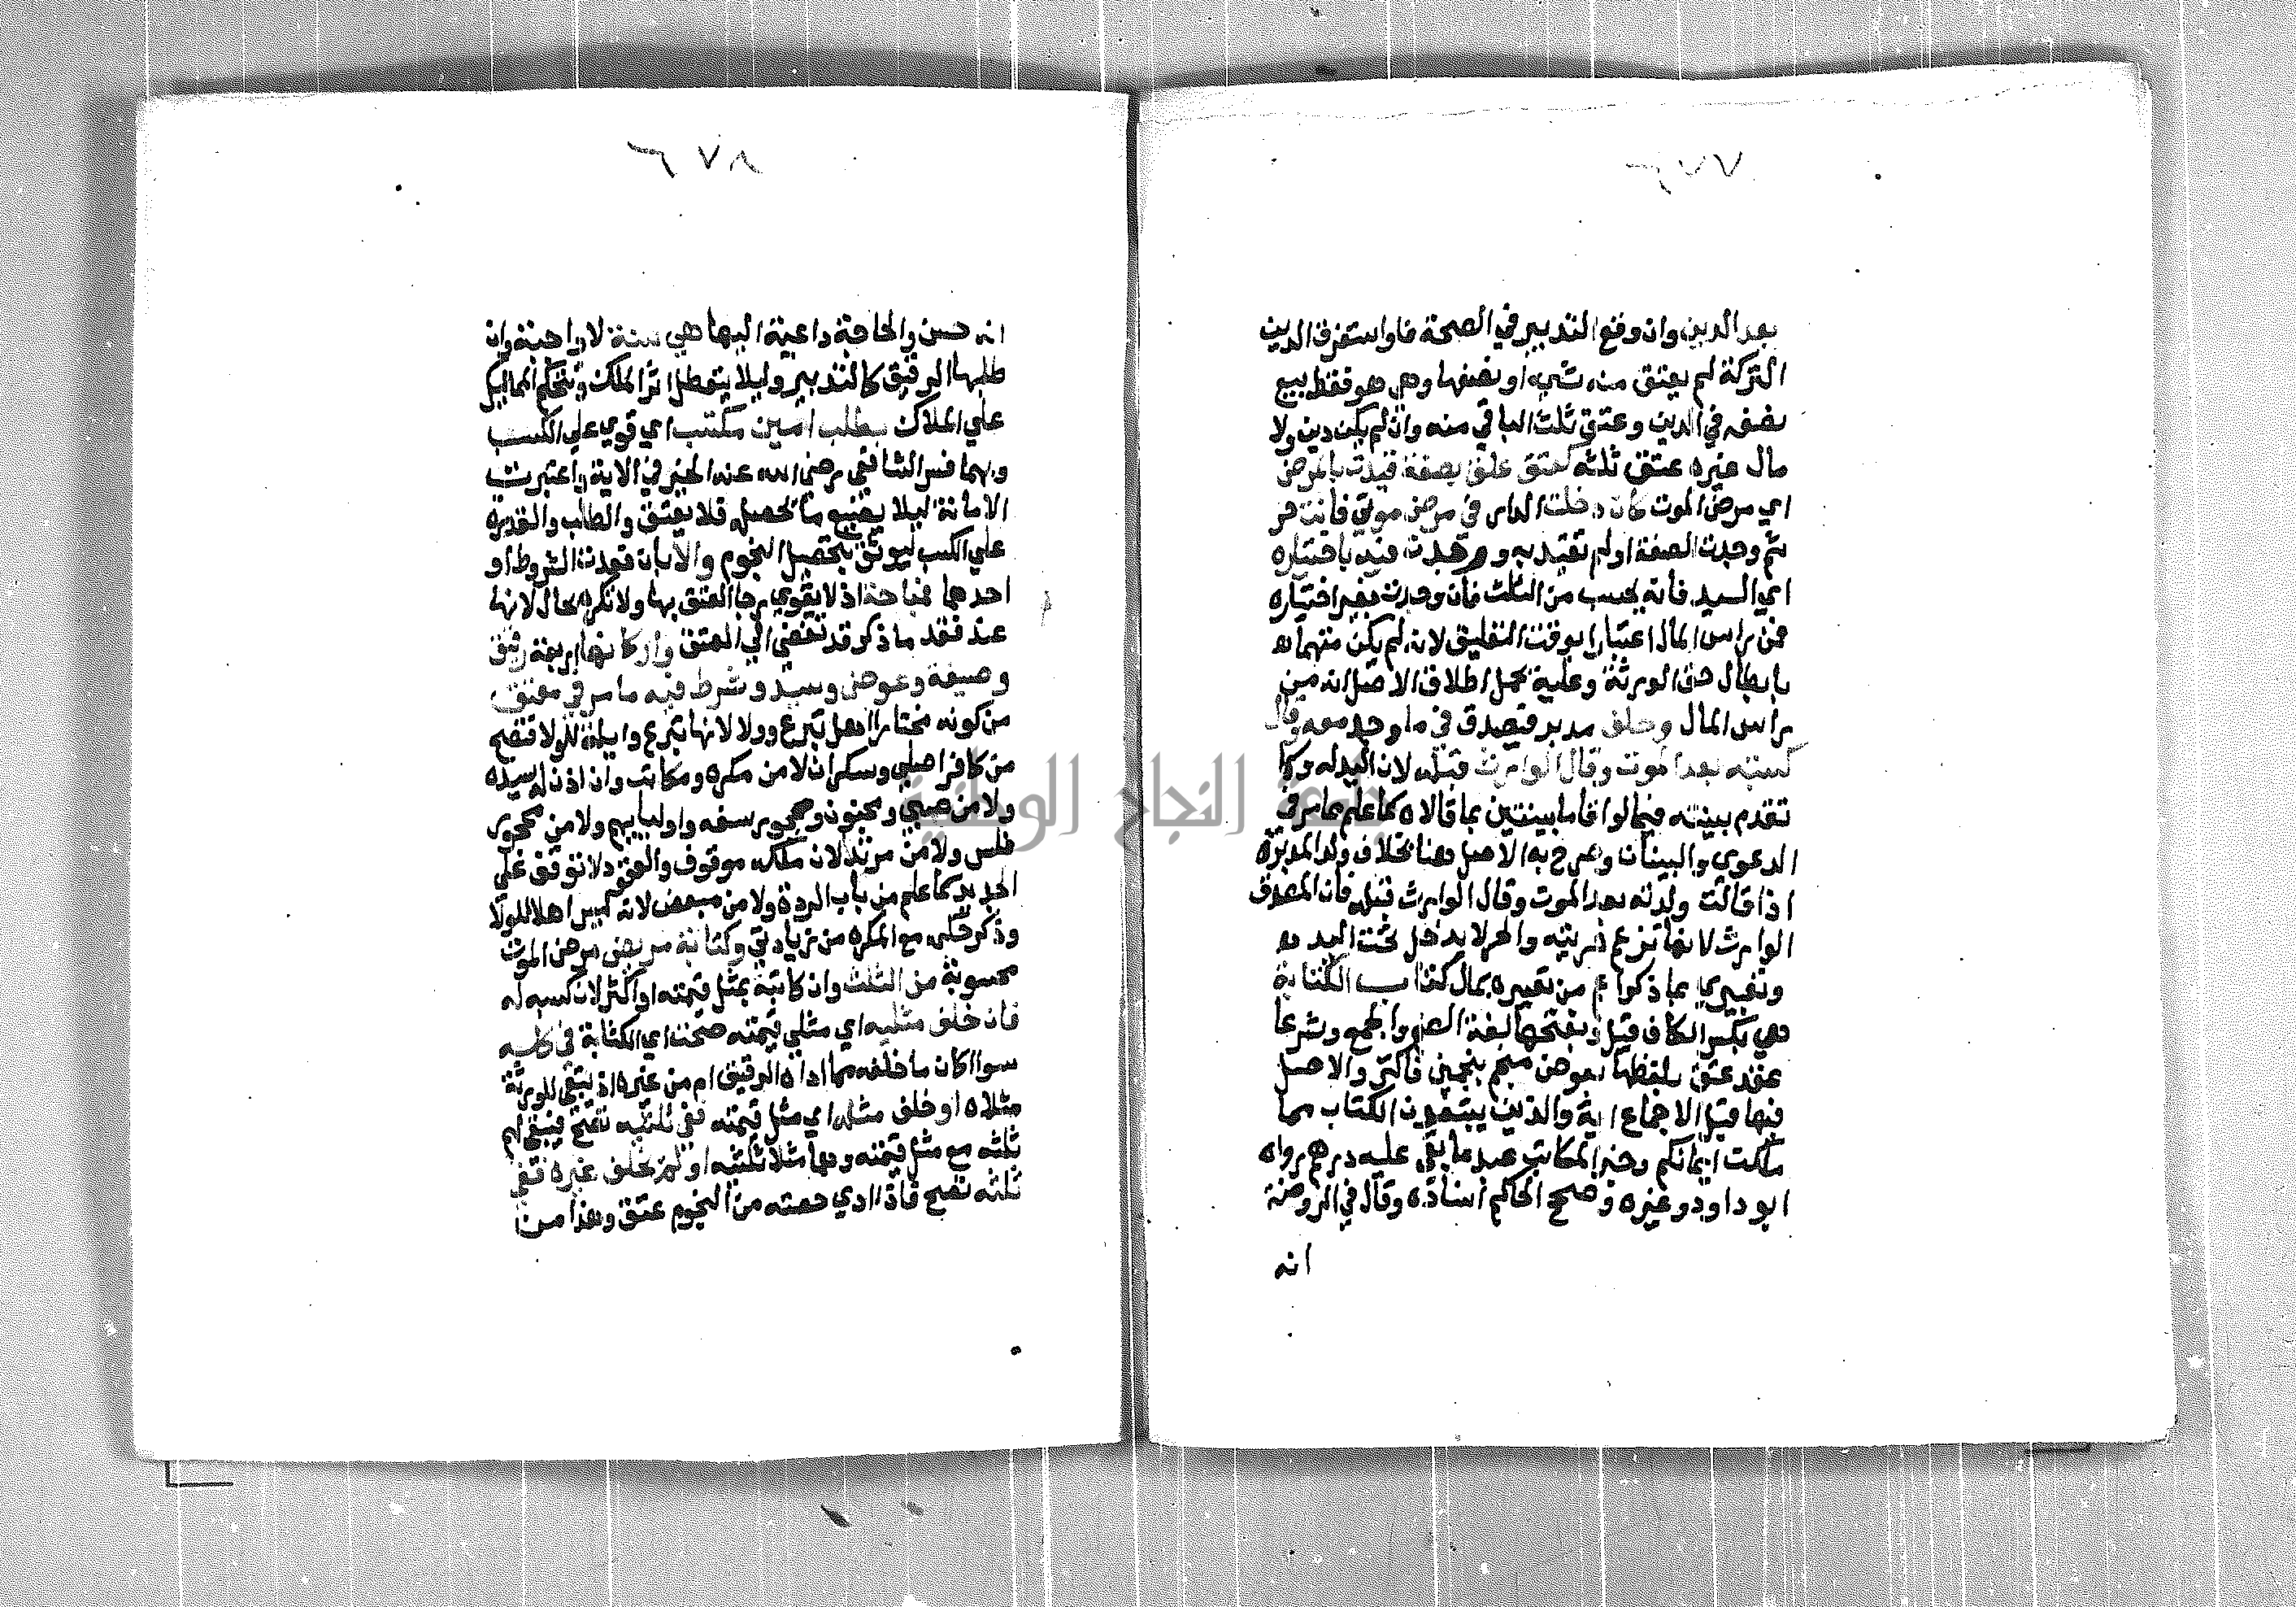 ٧٧٦
بعد الدين وان وقع التدبير في الصحة فلو استغرق الدين
التركة لم يعتق منه شيء او نصفها وهي هو فقط بيع
نصفه في الدين وعتق ثلث الباقي منه وان لم يكن دين ولا
مال غيره عتق ثلثه كعتق علق بصفة قيدت بالمرض
اي مرض الموت كان دخلت الدار في مرض موتي فانت حر
ثم وجدت الصفة او لم تقيد به ووجدت فيه باختياره
اي السيد فانه يحسب من الثلث فان وجدت بغير اختياره
فمن راس المال اعتبارا بوقت التعليق لانه لم يكن متهما به
بابطال حق الورثة وعليه يحمل اطلاق الاصل انه من
راس المال وحلف مدبر فيصدق في ما وجد معه وقال
كسبته بعد الموت وقال الوارث قبله لان اليد له وكما
تقدم بينته فيما لو اقاما بينتين بما قالاه كما علم مما مر في
الدعوى والبينات وصرح به الاصل هنا بخلاف ولد المدبرة
اذا قالت ولدته بعد الموت وقال الوارث قبله فان المصدق
الوارث لانها تزعم حريته والحر لا يدخل تحت اليد
وتعبيري بما ذكر اعم من تعبيره بمال كتاب الكتابة
هي بكسر الكاف قيل وبفتحها لغة الضم والجمع وشرعا
عقد عتق بلفظها بعوض منجم بنجمين فاكثر والاصل
فيها قبل الاجماع اية والذين يبتغون الكتاب مما
ملكت ايمانكم وخبر المكاتب عبد ما بقي عليه درهم رواه
ابو داود وغيره وصحح الحاكم اسناده وقال في الروضة
انه
٦٧٨
انه حسن والحاجة داعية اليها هي سنة لا واجبة وان
طلبها الرقيق كالتدبير وليلا يتعطل اثر الملك وتتحكم المماليك
علي الملاك بطلب امين مكتسب اي قوي علي الكسب
وبهما فسر الشافعي رضي الله عنه الخير في الاية واعتبرت
الامانة ليلا يضيع ما يحصله فلا يعتق والطلب والقدرة
علي الكسب ليوثق بتحصيل النجوم والا بان فقدت الشروط او
احدهما فمباحة اذ لا يقوي رجا العتق بها ولا تكره بحال لانها
عند فقد ما ذكر قد تفضي الي العتق واركانها اربعة رقيق
وصيغة وعوض وسيد وشرط فيه ما مر في معتق
من كونه مختارا اهل تبرع وولا لانها تبرع وايلة للولا فتصح
من كافر اصلي وسكران لا من مكره ومكاتب وان اذن له سيده
ولا من صبي ومجنون ومحجور سفه واوليايهم ولا من محجور
فلس ولا من مرتد لان ملكه موقوف والعقود لا توقف علي
الجديد كما علم من باب الردة ولا من مبعض لانه ليس اهلا للولا
وذكر حكم مع المكره من زيادتي وكتابة مريض مرض الموت
محسوبة من الثلث وان كاتبه بمثل قيمته او اكثر لان كسبه له
فان خلف مثليه اي مثلي قيمته صحت اي الكتابة في كله
سوا كان ما خلفه مما اداه الرقيق ام من غيره اذ يبقي للورثة
مثلاه او خلف مثله اي مثل قيمته ففي ثلثيه تصح فيبقي لهم
ثلثه مع مثل قيمته وهما مثلا ثلثيه او لم يخلف غيره ففي
ثلثه تصح فاذا ادي حصته من النجوم عتق وهذا من
جامعة النجاح الوطنية